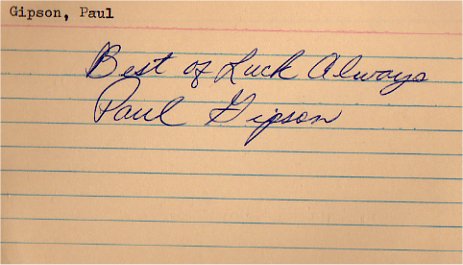 Gipson, Paul
Best of Luck Always
Paul Gipson